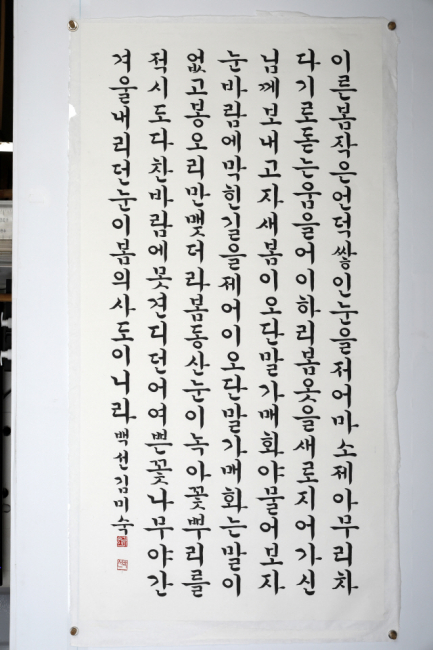 이른봄작은언덕쌓인눈을저어마소제아무리차
다기로돋는움을어이하리봄옷을새로지어가신
님께보내고자새봄이오단말가매화야물어보자
눈바람에막힌길을제어이오단말가매화는말이
없고봉오리만맺더라봄동산눈이녹아꽃뿌리를
적시도다찬바람에못견디던어여쁜꽃나무야간
겨울내리던눈이봄의사도이니라 백선김미숙